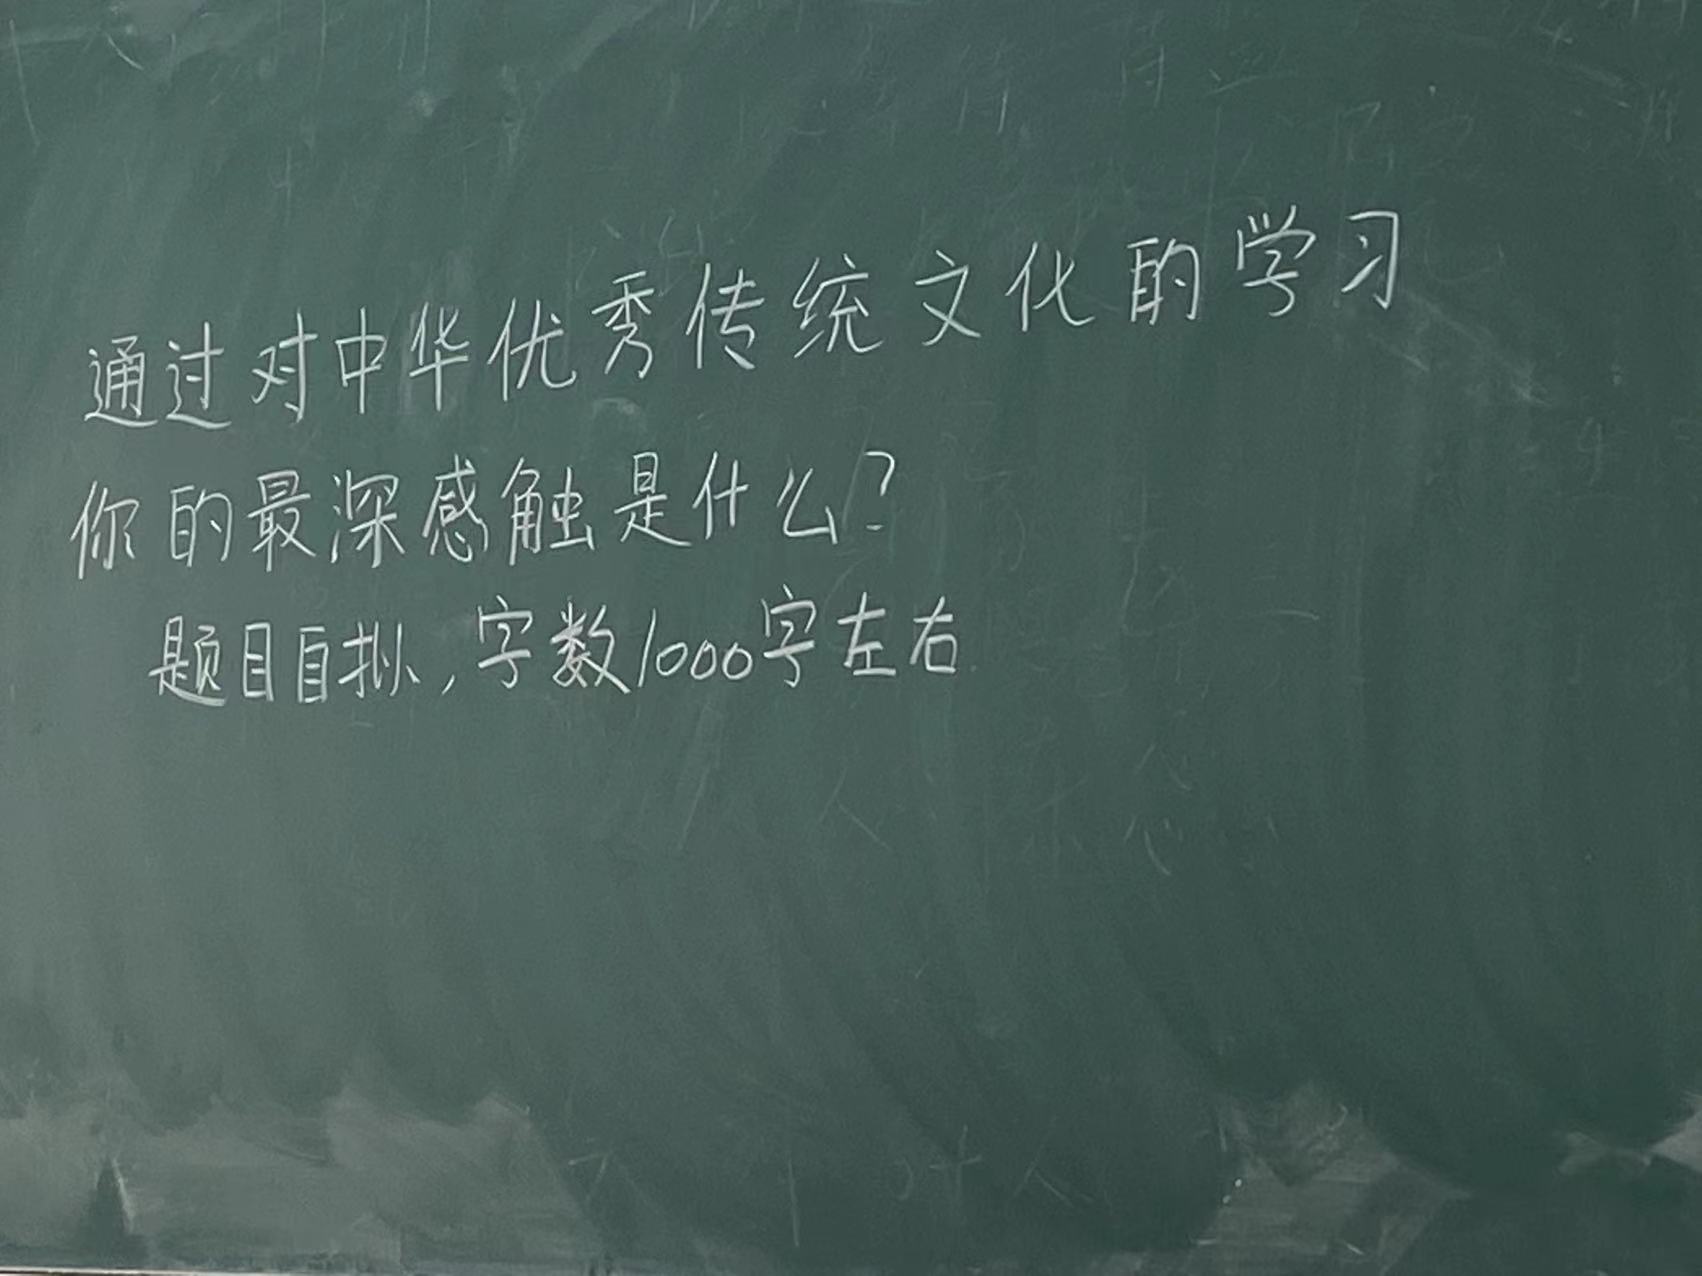 通过对中华优秀传统文化的学习
你的最深感触是什么？
题目自拟，字数1000字左右